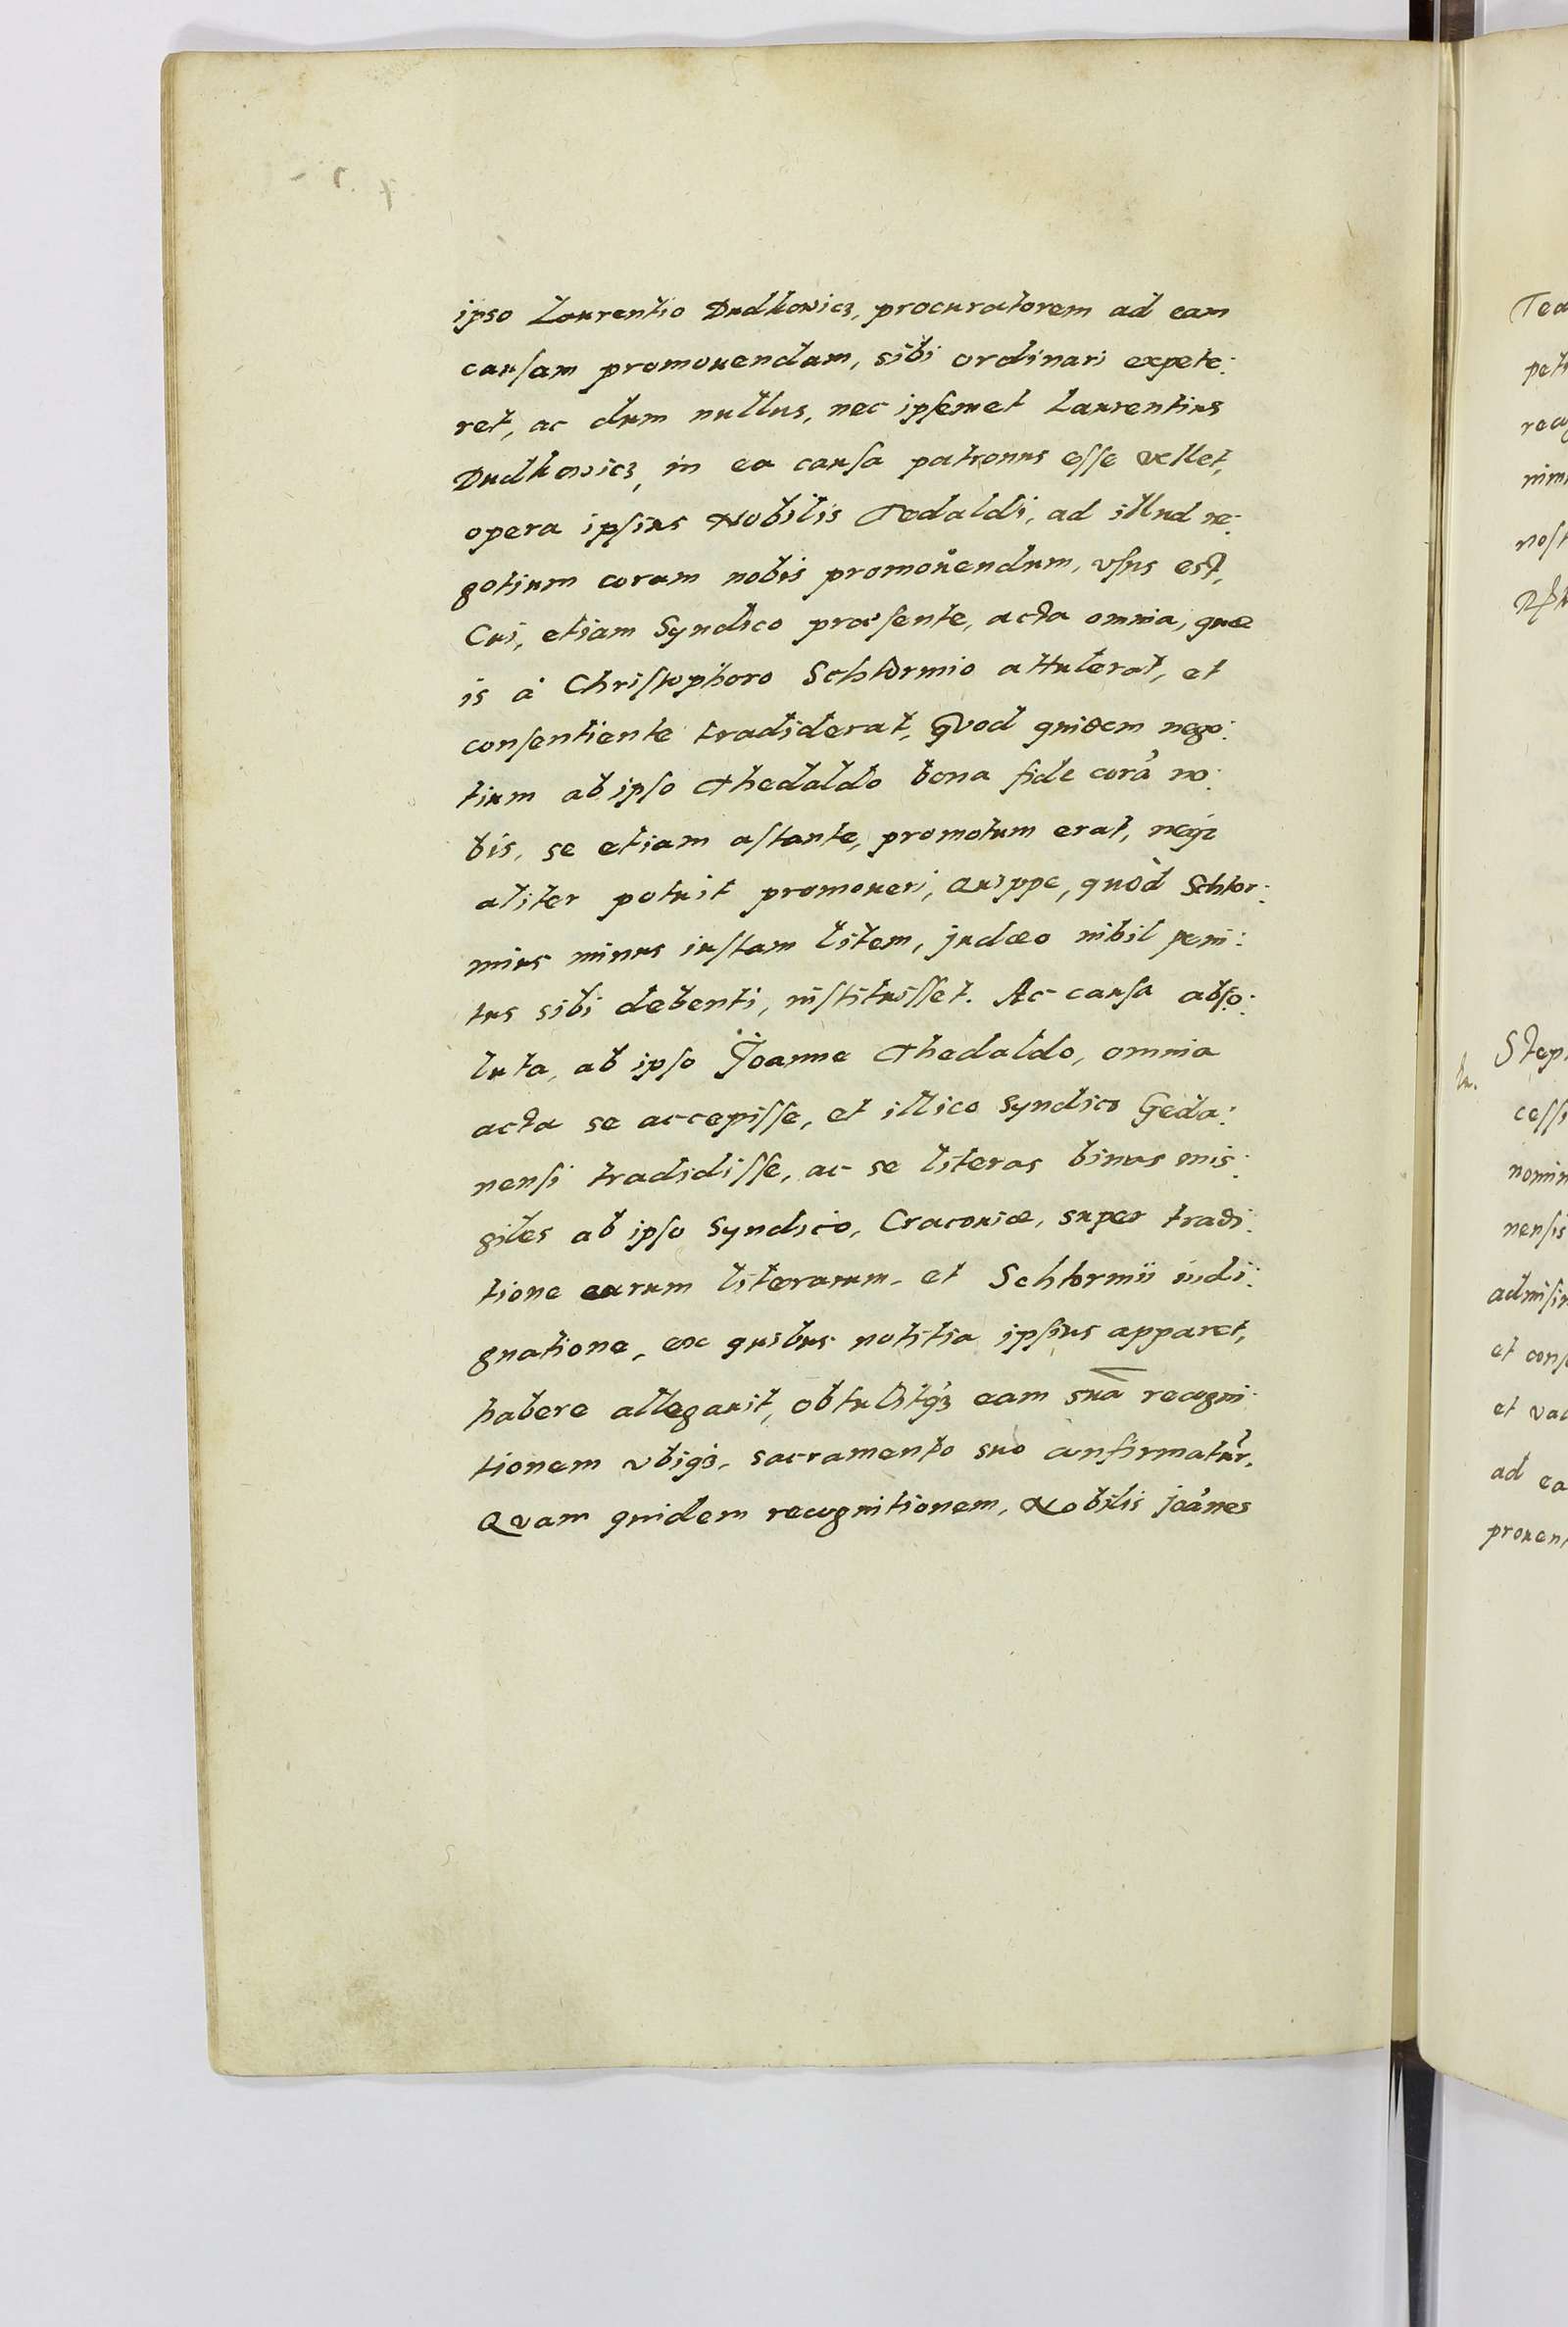 ipso Laurentio Dudkowicz, procuratorem ad eam
causam promouendam, sibi ordinari expete:
ret, ac dum nullus, nec ipsemet Laurentius
Dudkowicz, in ea causa patronus esse vellet,
opera ipsius Nobilis Tedaldi, ad illud ne:
gotium coram nobis promouendum, vsus est,
Cui, etiam Syndico præsente, acta omnia, quæ
is à Christophoro Schtormio attulerat, et
consentiente tradiderat, Quod quidem nego:
tium ab ipso Thedaldo bona fide corã no:
bis, se etiam astante, promotum erat, neqȝ
aliter potuit promoueri, Quippe, quòd Schtor:
mius minus iustam litem, judæo nihil peni:
tus sibi debenti, instituisset. Ac causa abso:
luta, ab ipso Joanne Thedaldo, omnia
acta se accepisse, et illico Syndico Geda:
nensi tradidisse, ac se literas binas mis:
siles ab ipso Syndico, Cracouiæ, super tradi:
tione earum literarum, et Schtormii indi:
gnatione, ex quibus notitia ipsius apparet,
habere allegauit, obtulitqȝ eam suã recogni:
tionem vbiqȝ, sacramento suo confirmatur.
Quam quidem recognitionem, Nobilis joãnes
Tea
petr
nost
Step
cessi
nomin
nensis
admisi
et cons
et vad
ad ea
prouent